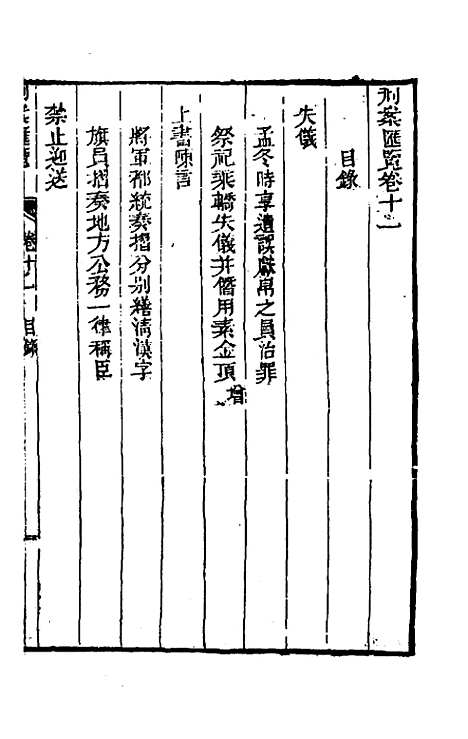 刑案匯覽卷十一
目錄
失儀
孟冬時享遺誤獻帛之員治罪
祭祀乘轎失儀并僭用素金頂增
上書陳言
將軍都統奏摺分别繕清漢字
旗員摺奏地方公務一律稱臣
禁止迎送
刑案匯覽 卷十一 目錄